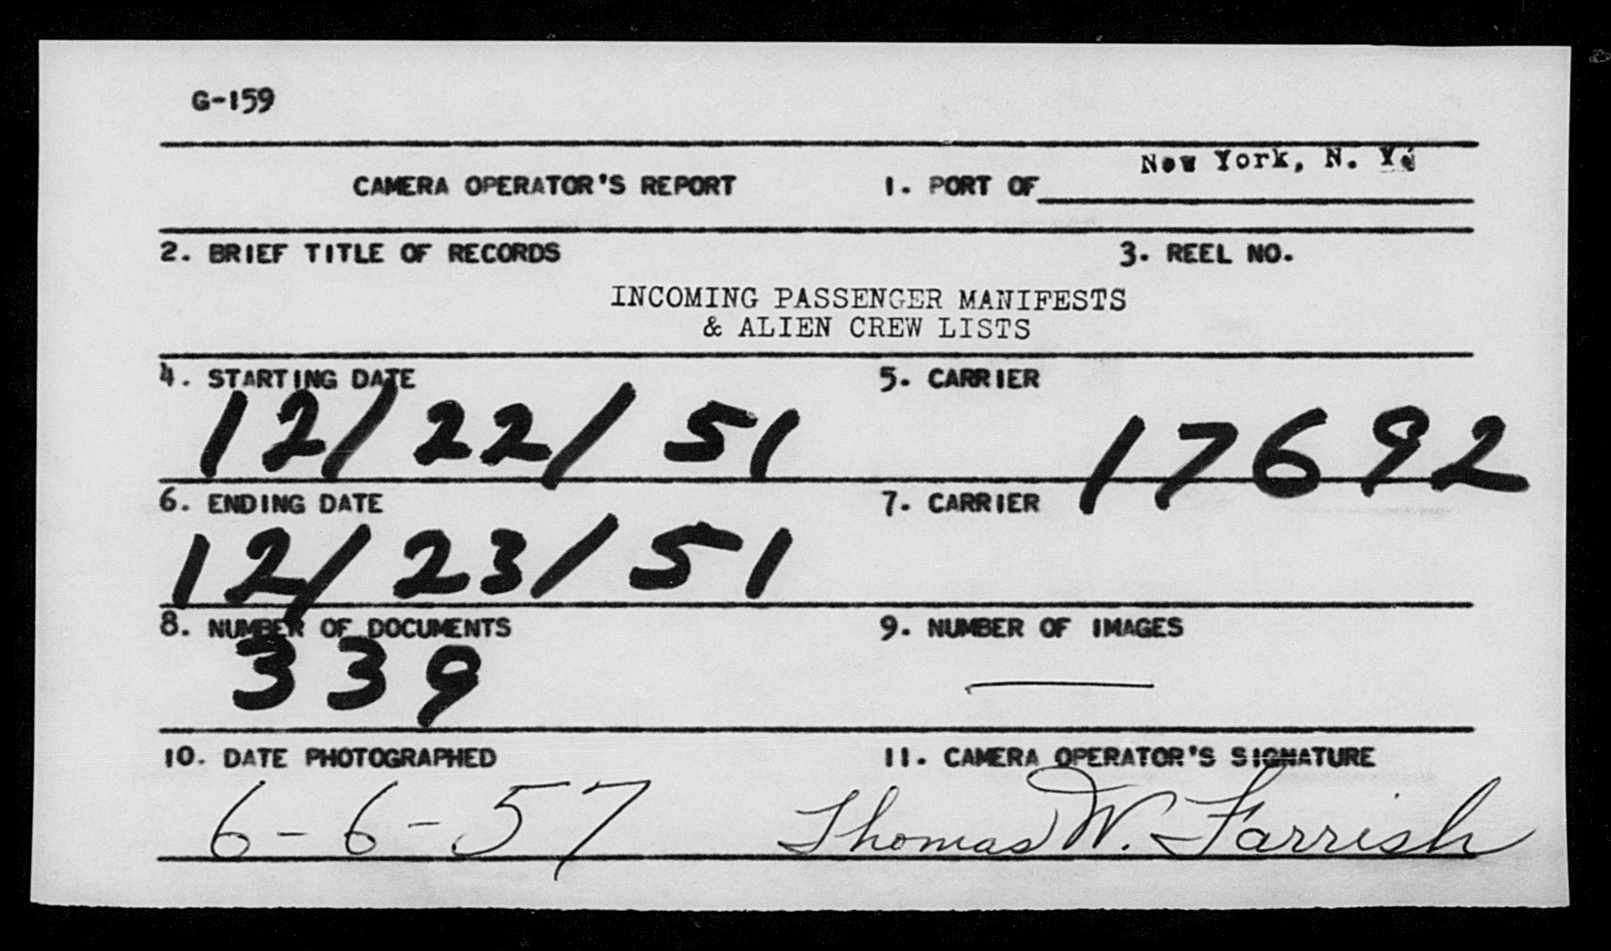 G-159
CAMERA OPERATOR'S REPORT 1. PORT OF New York, N. Y.
2. BRIEF TITLE OF RECORDS 3. REEL NO.
INCOMING PASSENGER MANIFESTS
& ALIEN CREW LISTS
4. STARTING DATE 5. CARRIER
12/22/51 17692
6. ENDING DATE 7. CARRIER
12/23/51
8. NUMBER OF DOCUMENTS 9. NUMBER OF IMAGES
339 —
10. DATE PHOTOGRAPHED 11. CAMERA OPERATOR'S SIGNATURE
6-6-57 Thomas W. Farrish